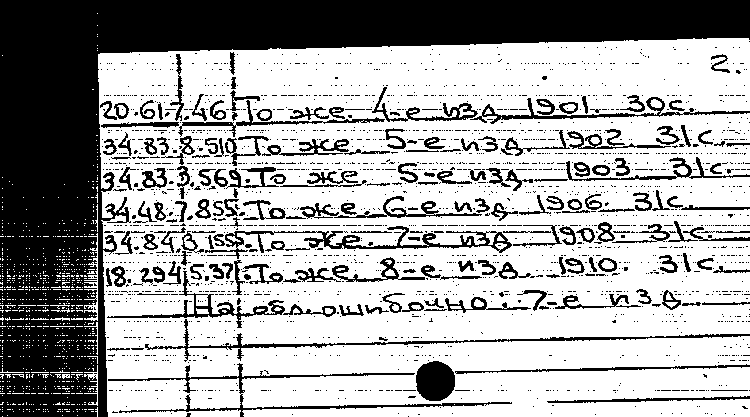 2.
20.61.7.46. То же. 4-е изд. 1901. 30с.
34.83.8.510 То же. 5-е изд. 1902. 31с.
34.83.3.569. То же. 5-е изд. 1903. 31с.
34.48.7.855. То же. 6-е изд. 1906. 31с.
34.84.3.1552. То же. 7-е изд. 1908. 31с.
18.294.5.371. То же. 8-е изд. 1910. 31с.
На обл. ошибочно: 7-е изд.